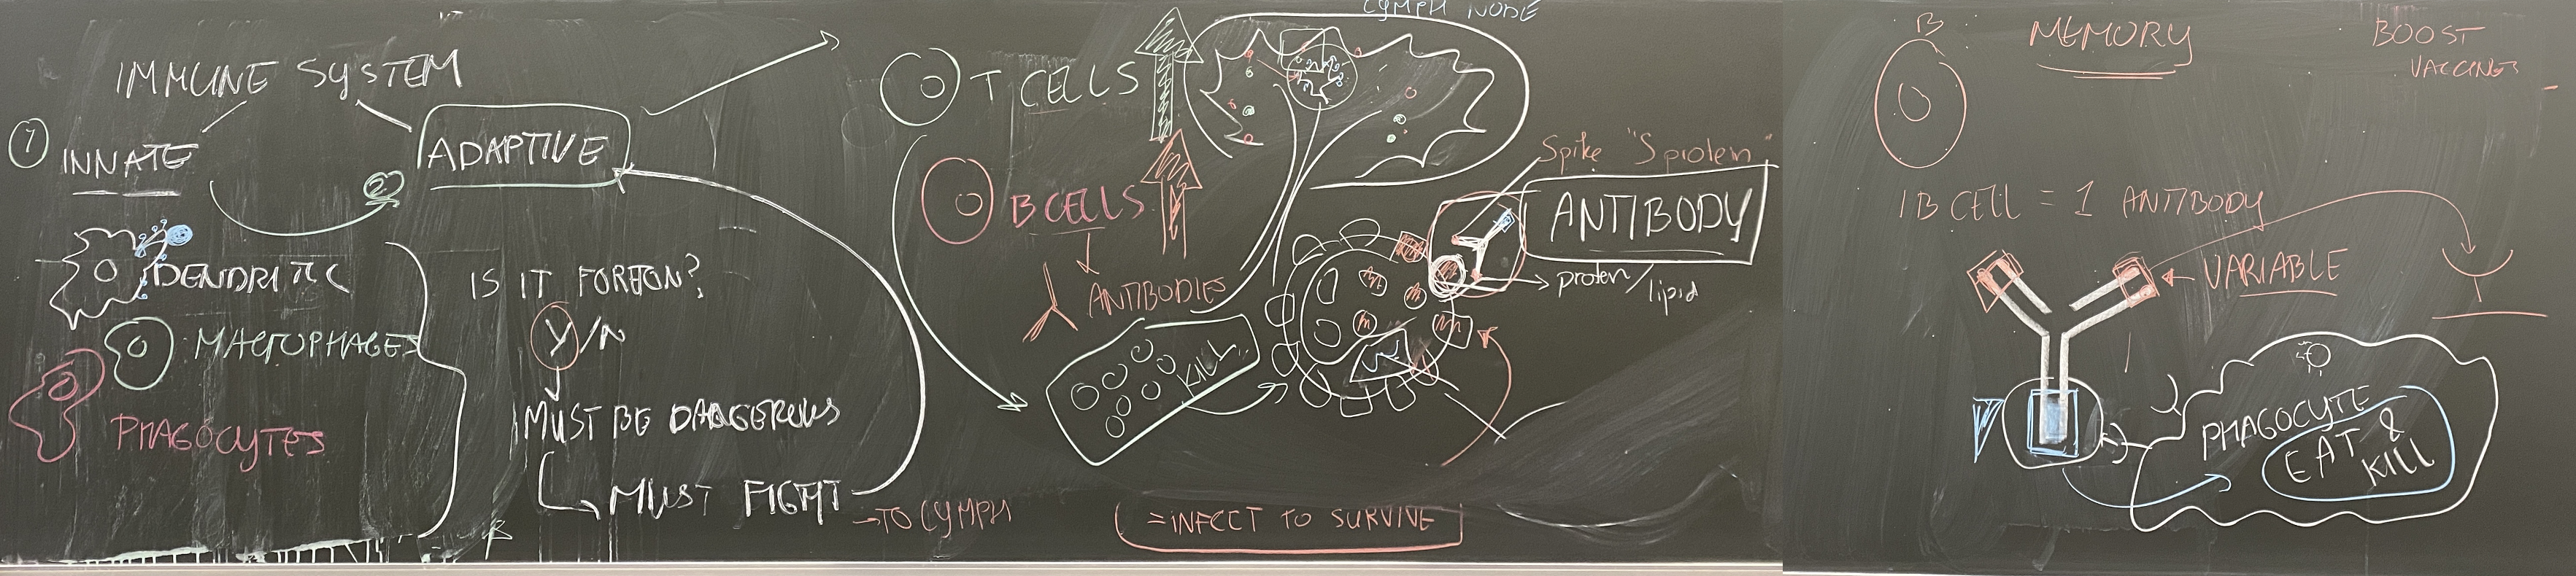 IMMUNE SYSTEM
1 INNATE
ADAPTIVE
DENDRITIC
MACROPHAGES
PHAGOCYTES
IS IT FOREIGN?
Y/N
MUST BE DANGEROUS
MUST FIGHT
→ TO LYMPH
T CELLS
B CELLS
ANTIBODIES
KILL
LYMPH NODE
Spike "S protein"
ANTIBODY
protein/lipid
= INFECT TO SURVIVE
B
MEMORY
BOOST
VACCINES
1 B CELL = 1 ANTIBODY
VARIABLE
PHAGOCYTE
EAT &
KILL